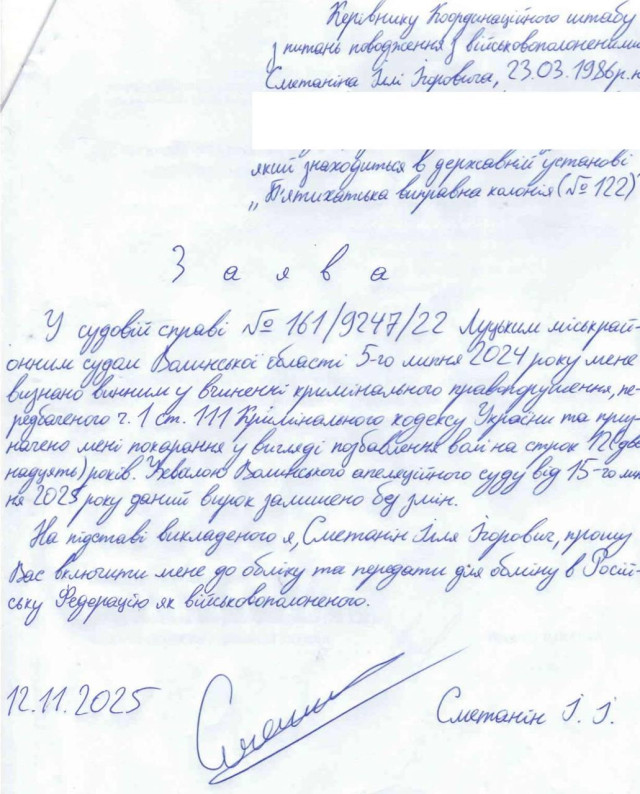 Керівнику Координаційного штабу
з питань поводження з військовополоненими
Сметаніна Іллі Ігоровича, 23.03.1986р.н
який знаходиться в державній установі
„П'ятихатська виправна колонія (№122)"
Заява
У судовій справі № 161/9247/22 Луцьким міськрай-
онним судом Волинської області 5-го липня 2024 року мене
визнано винним у вчиненні кримінального правопорушення, пе-
редбаченого ч. 1 ст. 111 Кримінального кодексу України та приз-
начено мені покарання у вигляді позбавлення волі на строк 12 (два-
надцять) років. Ухвалою Волинського апеляційного суду від 15-го
ня 2025 року даний вирок залишено без змін.
На підставі викладеного я, Сметанін Ілля Ігорович, прошу
Вас включити мене до обліку та передати для обміну в Росій-
ську Федерацію як військовополоненого.
12.11.2025
Сметанін І. І.